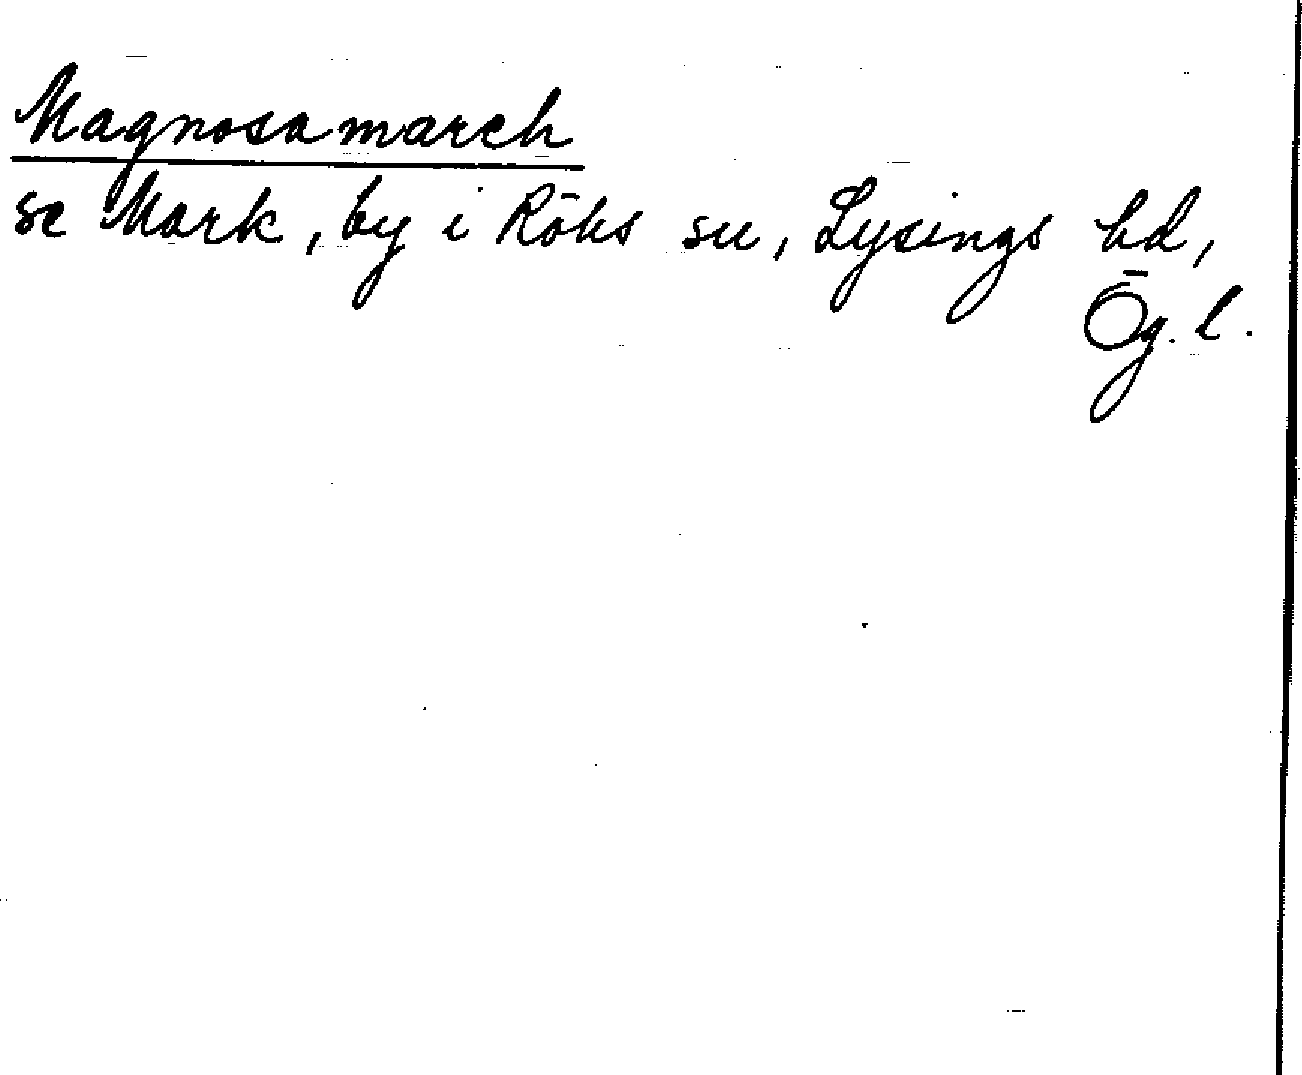 Magnosamarch
se Mark, by i Röks sn, Lysings hd,
Ög. l.